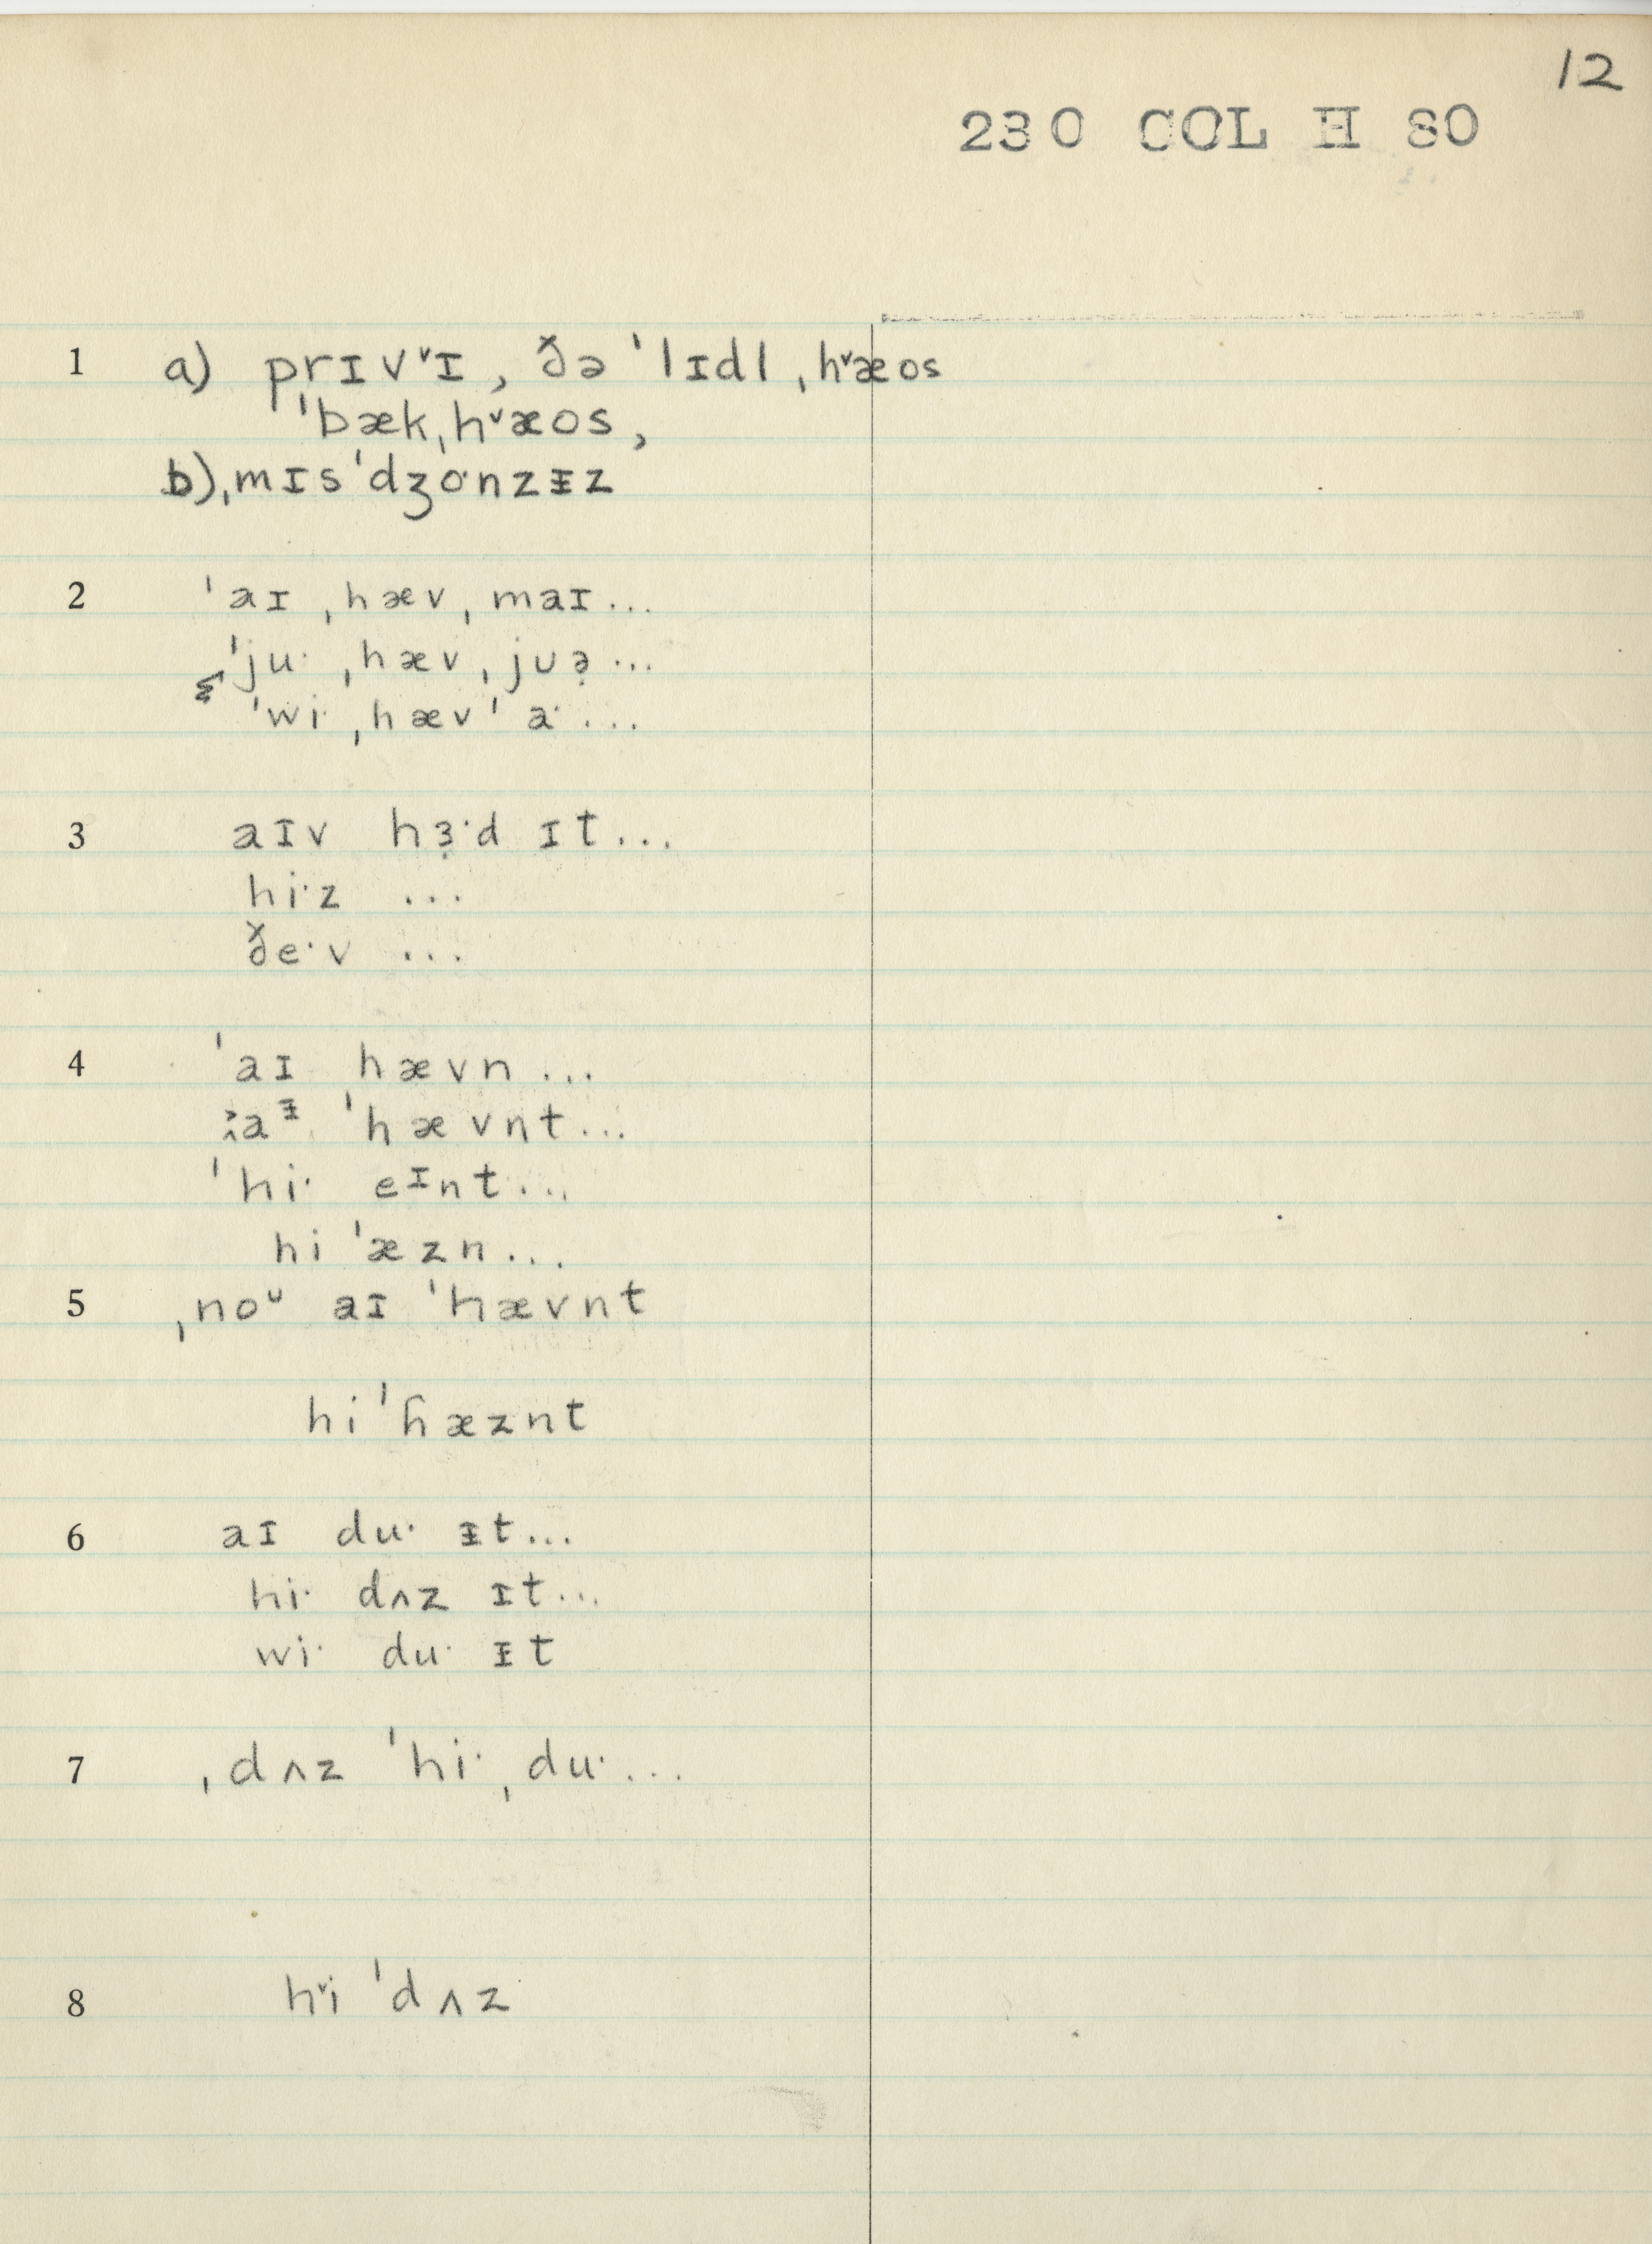 12
230 COL H 80
1 a) prɪvˇɪ, ðə ˈlɪdl ˌhˇæos
ˈbæk ˌhˇæos,
b) ˌmɪsˈdʒoˑnzᵻz
2 ˈaɪ ˌhæv ˌmaɪ...
ˈjuˑ ˌhæv ˌjuə̣...
ˈwiˑ ˌhæv ˈaˑ...
3 aɪv hɜ̣ˑd ɪt...
hiˑz ...
ðeˑv ...
4 ˈaɪ hævn...
aᵻ ˈhævnt...
ˈhiˑ eᶦnt...
hi ˈæzn...
5 ˌnoᵘ aɪ ˈhævnt
hi ˈɦæznt
6 aɪ duˑ ᵻt...
hiˑ dʌz ɪt...
wiˑ duˑ ᵻt
7 ˌdʌz ˈhiˑ ˌduˑ...
8 hˇi ˈdʌz